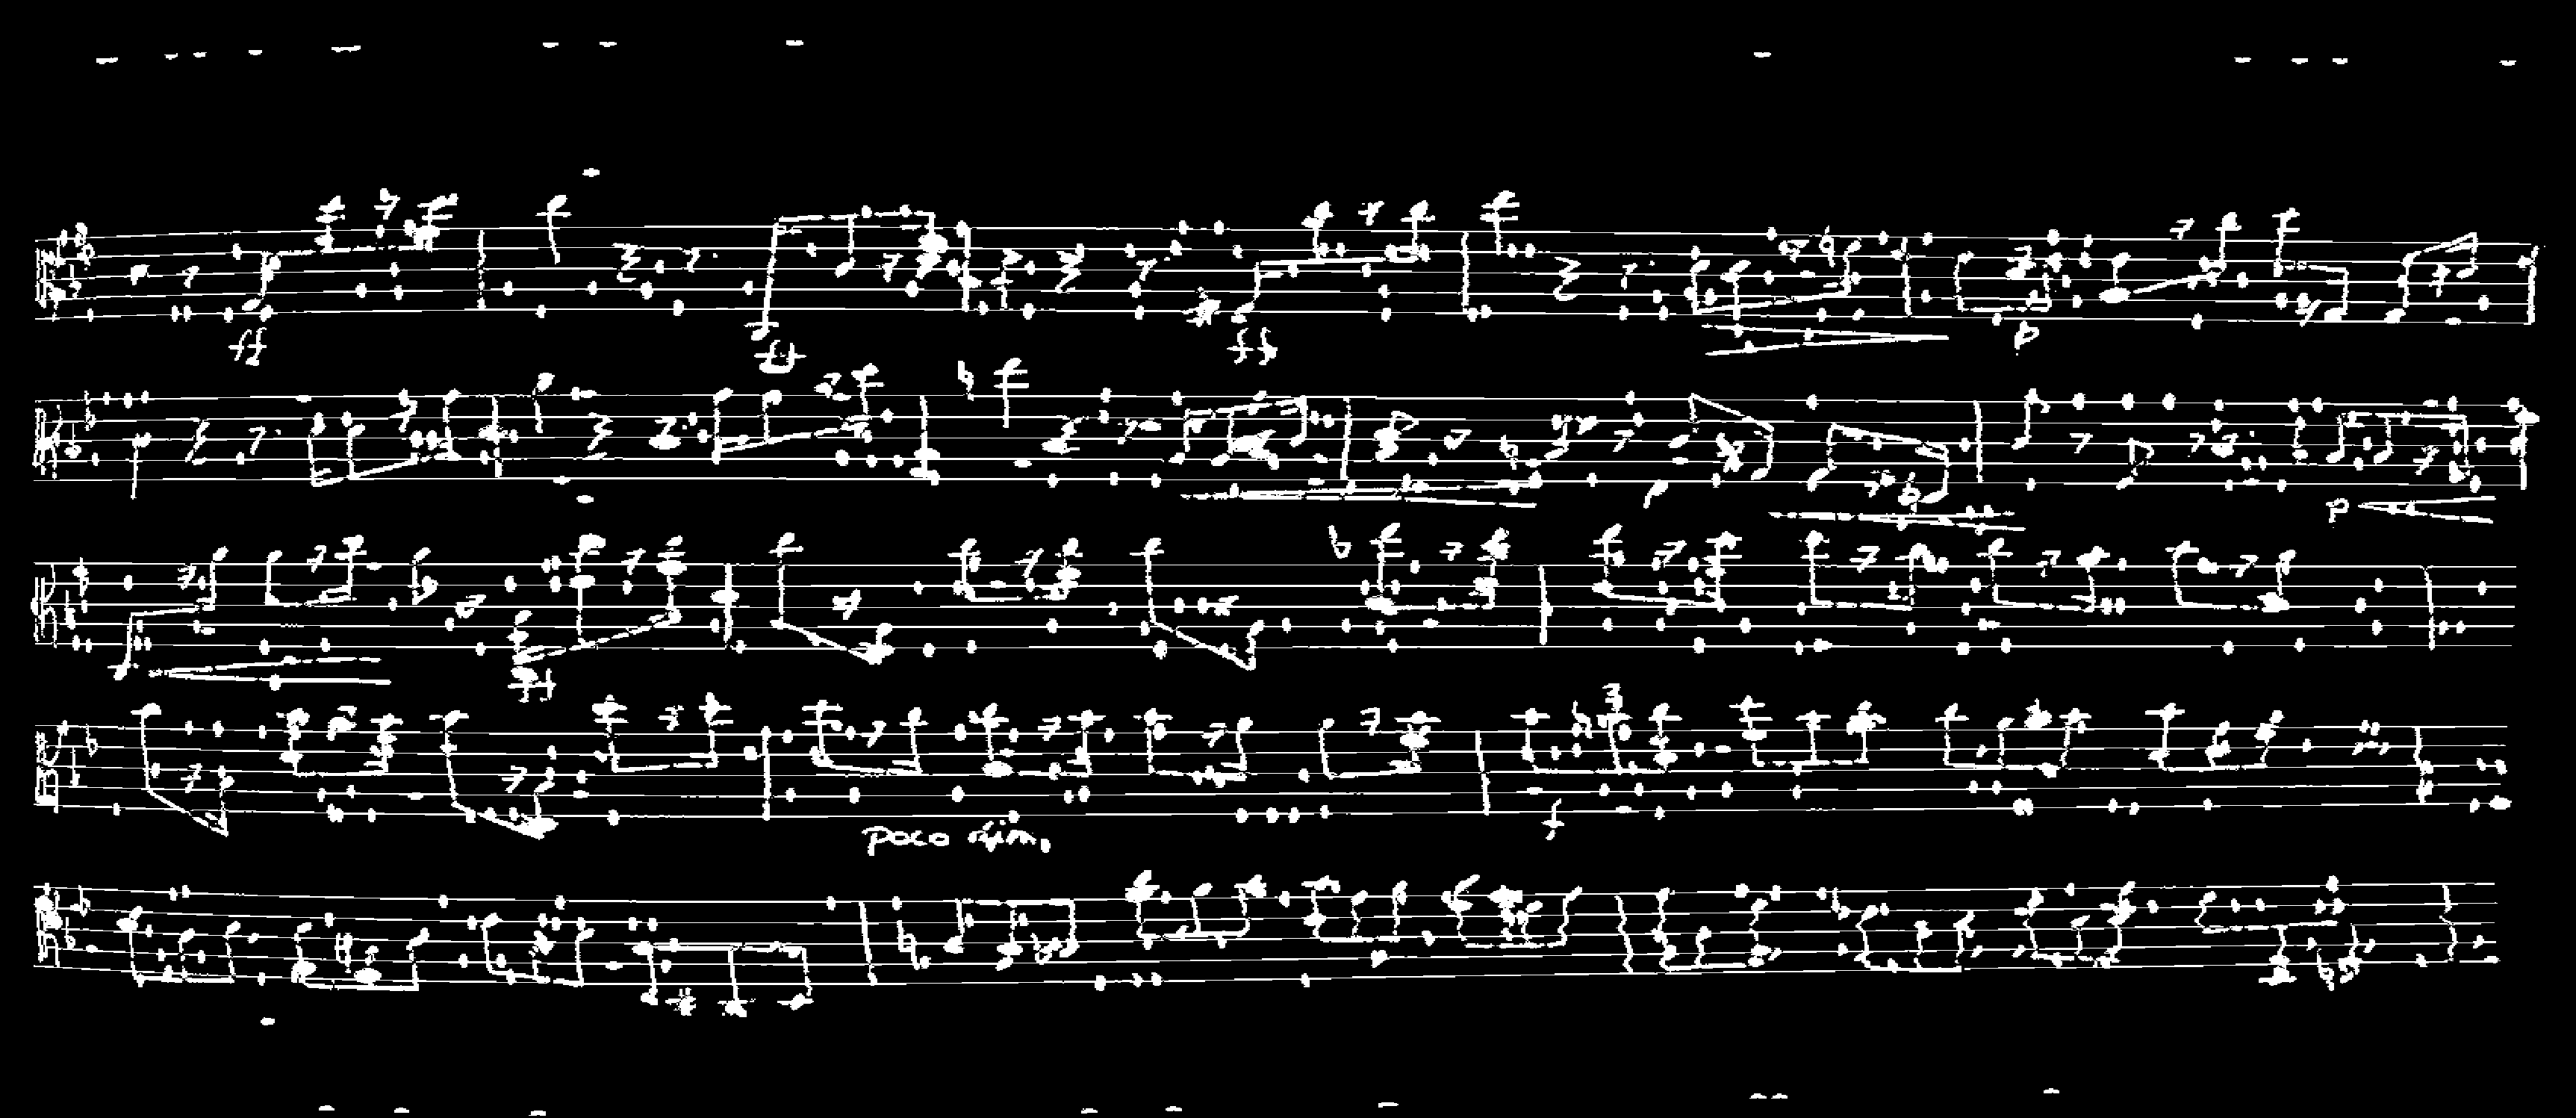 ff ff ff p
p
ff
3
poco dim.
f